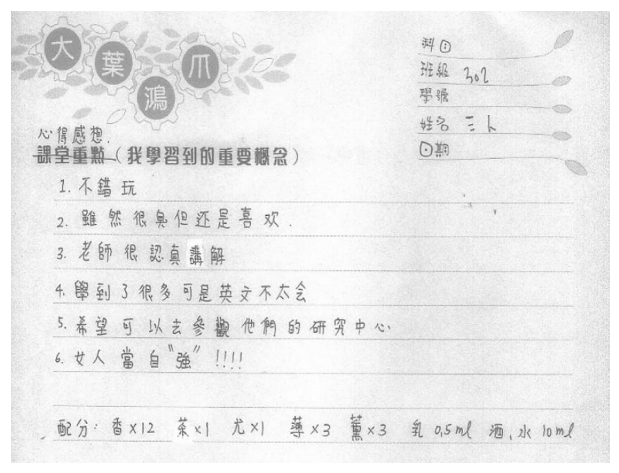 大葉鴻爪
科目
班級 302
學號
姓名 三卜
日期
心得感想.
課堂重點（我學習到的重要概念）
1. 不錯玩
2. 雖然很臭但还是喜欢.
3. 老師很認真講解
4. 學到了很多可是英文不太会
5. 希望可以去參觀他們的研究中心
6. 女人當自"強" !!!!
配分: 香×12 茶×1 尤×1 薄×3 薰×3 乳 0.5ml 酒、水 10ml